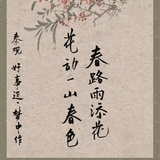 春路雨添花
花动一山春色
秦观 好事近·梦中作